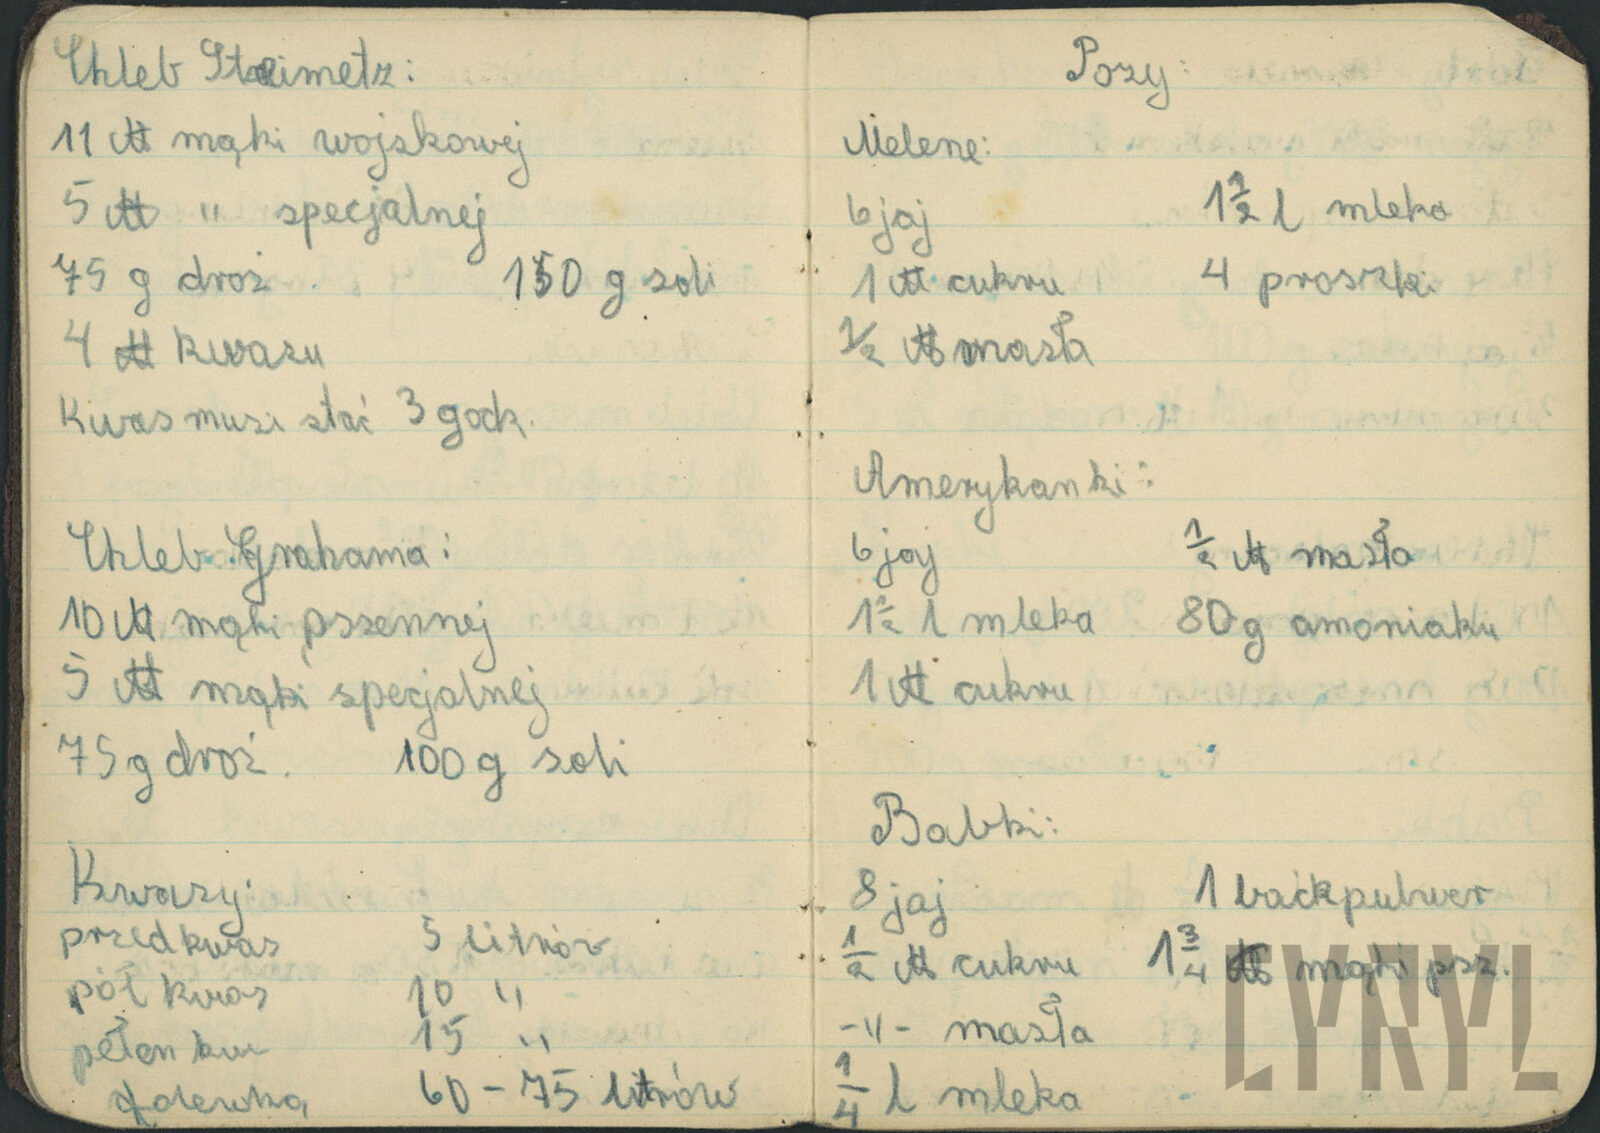 Chleb Steimetz:
11 ℔ mąki wojskowej
5 ℔ " specjalnej
75 g droż. 150 g soli
4 ℔ kwasu
Kwas musi stać 3 godz.
Chleb Grahama:
10 ℔ mąki pszennej
5 ℔ mąki specjalnej
75 g droż. 100 g soli
Kwasy:
przedkwas 5 litrów
pół kwas 10 "
pełen kw 15 "
60 - 75 litrów
Pozy:
Melene:
6 jaj 1 1/2 l mleka
1 ℔ cukru 4 proszki
1/2 ℔ masła
Amerykanki:
6 jaj 1/2 ℔ masła
1 1/2 l mleka 80 g amoniaku
1 ℔ cukru
Babki:
8 jaj 1 backpulwer
1/2 ℔ cukru 1 3/4 ℔ mąki psz.
-"- masła
1/4 l mleka
LYNYL